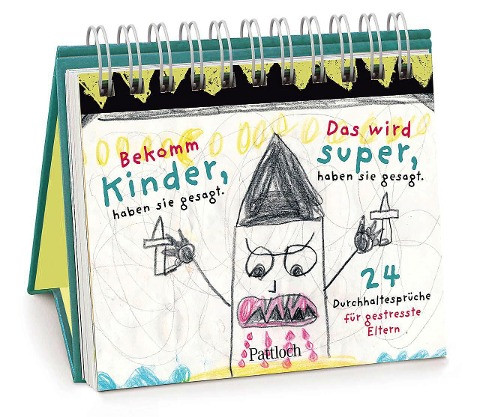 Bekomm
Kinder,
haben sie gesagt.
Das wird
super,
haben sie gesagt.
24
Durchhaltesprüche
für gestresste
Eltern
Pattloch